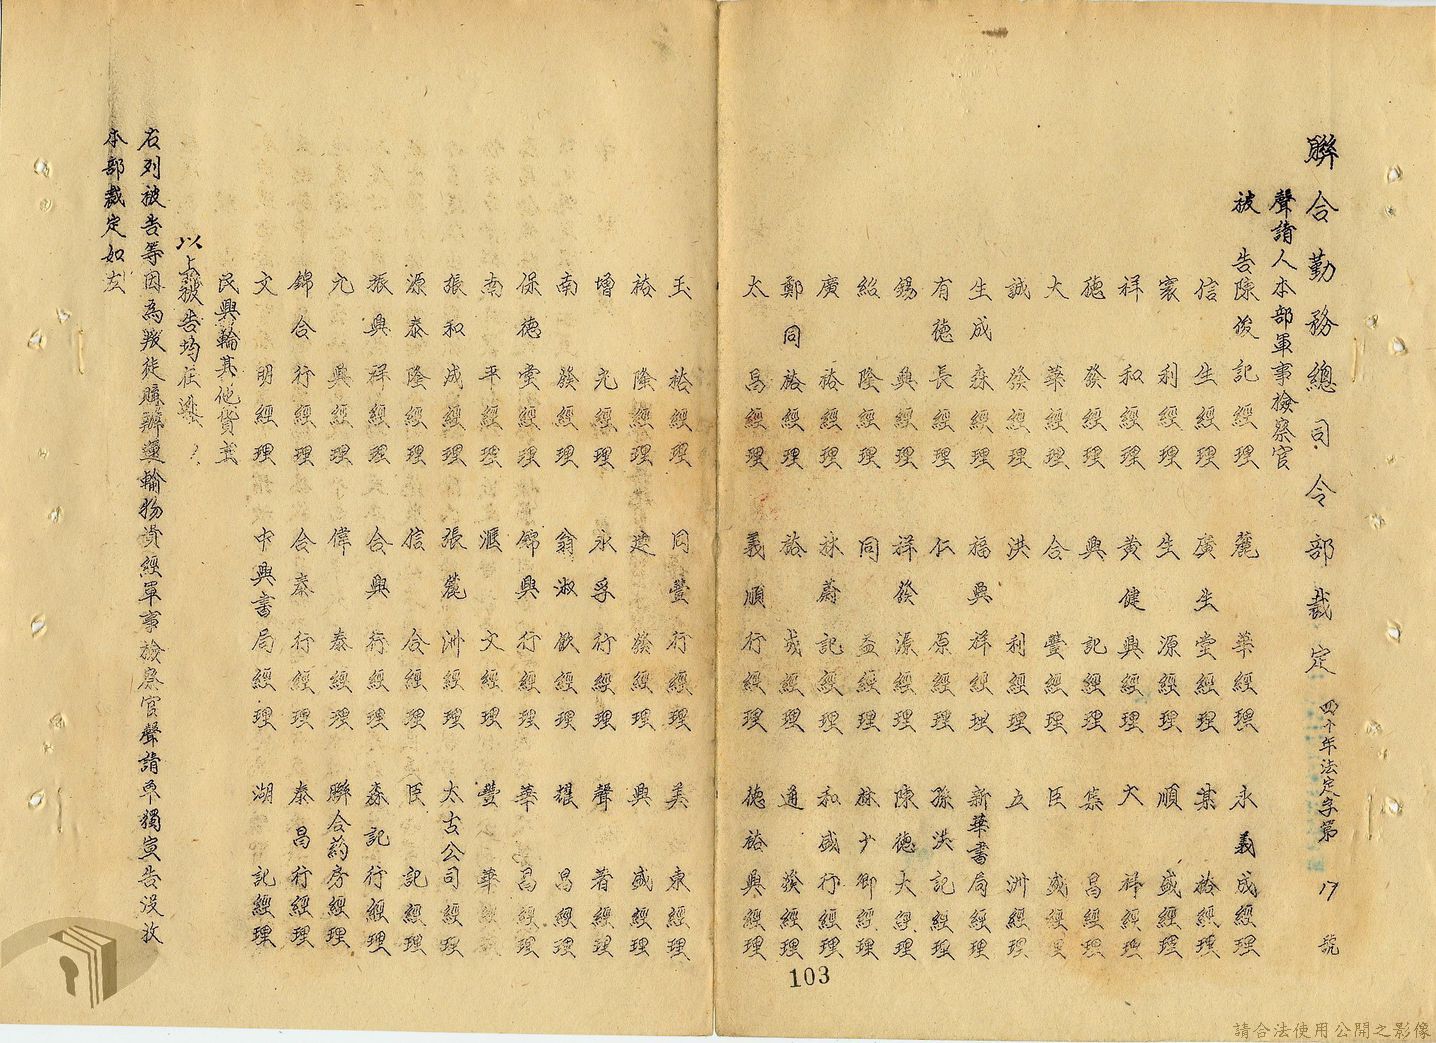 聯合勤務總司令部裁定 四十年法定字第 17 號
聲請人本部軍事檢察官
被告陳後記經理 麗華經理 永義成經理
信生經理 廣生堂經理 某裕經理
寰利經理 生源經理 順盛經理
祥和經理 黃健興經理 大祥經理
德發經理 興記經理 集昌經理
大華經理 合豐經理 臣盛經理
誠發經理 洪利經理 立洲經理
生成森經理 福興祥經理 新華書局經理
有德長經理 仁原經理 孫洪記經理
錫興經理 祥發源經理 陳德大經理
紹隆經理 同益經理 林少卿經理
廣裕經理 林蔚記經理 和盛行經理
鄭同裕經理 裕成經理 通發經理
太昌經理 義順行經理 德裕興經理
玉裕經理 同豐行經理 美東經理
裕隆經理 建發經理 興盛經理
增允經理 永孚行經理 聲著經理
南發經理 翁淑歡經理 耀昌經理
保德堂經理 錦興行經理 華昌經理
南平經理 滙文經理 豐華經理
張和成經理 張麓洲經理 太古公司經理
源泰隆經理 信合經理 臣記經理
振興祥經理 合興行經理 森記行經理
允興經理 偉泰經理 聯合葯房經理
錦合行經理 合泰行經理 泰昌行經理
文明經理 中興書局經理 湖記經理
民興輪其他貨主
以上被告均在逃
右列被告等因為叛徒購辦運輸物資經軍事檢察官聲請單獨宣告沒收
本部裁定如左
103
請合法使用公開之影像